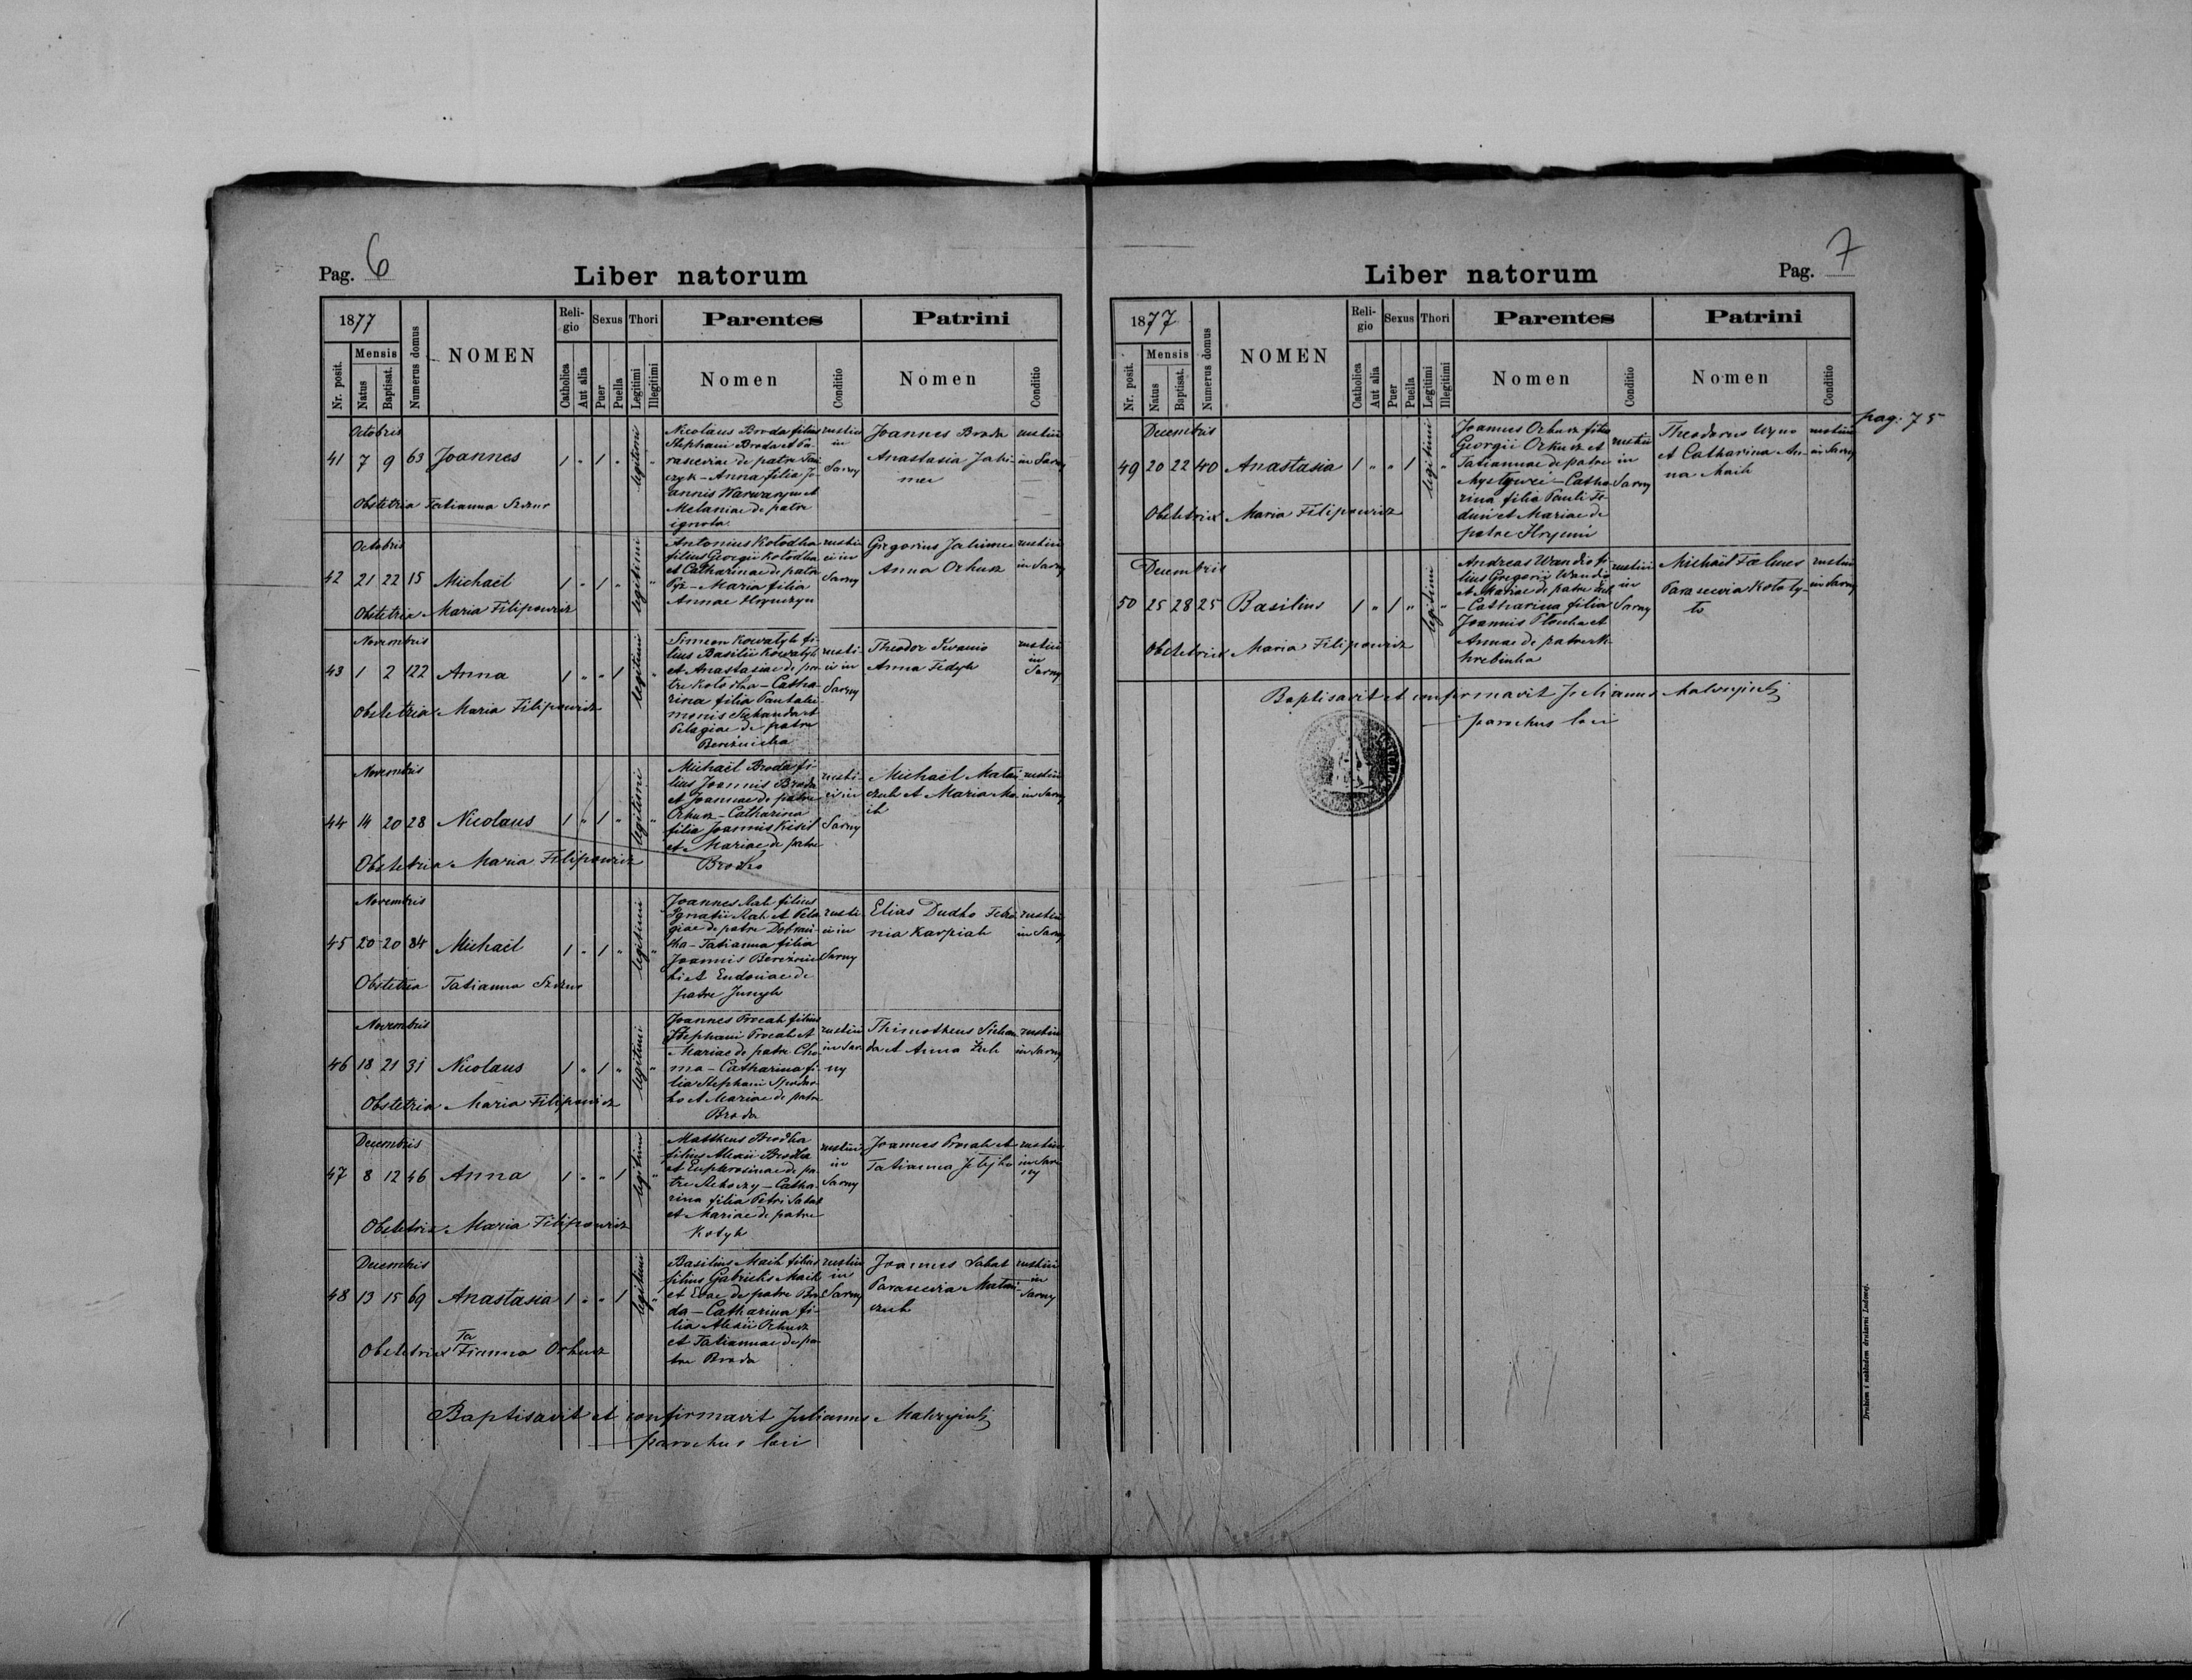 Pag. 6
Liber natorum
1877
Nr. posit.
Mensis
Natus
Baptisat.
Numerus domus
NOMEN
Religio
Catholica
Aut alia
Sexus
Puer
Puella
Thori
Legitimi
Illegitimi
Parentes
Nomen
Conditio
Patrini
Nomen
Conditio
Octobris
41 7 9 63 Joannes 1 " 1 " legitimi "
Nicolaus Broda filius
Stephani Broda et Pa-
rasceviae de patre
Anna filia Jo-
annis
Melaniae de patre
ignota
rustici
in
Sarny
Joannes Broda
Anastasia Jaki-
mec
rustici
in Sarny
Obstetrix Tatianna
Octobris
42 21 22 15 Michaël 1 " 1 " legitimi "
Antonius Kołodka
filius Georgii Kołodka
et Catharinae de patre
Maria filia
Annae Hrynczyn
rusti-
ci in
Sarny
Gregorius Jakimec
Anna Orkusz
rustici
in Sarny
Obstetrix Maria Filipowicz
Novembris
43 1 2 122 Anna 1 " " 1 legitimi "
Simeon Kowalyk fi-
lius Basilii Kowalyk
et Anastasiae de pa-
tre Kołodka - Catha-
rina filia Pantale-
monis et
Pelagiae de patre
Bereźnicka
rusti-
ci in
Sarny
Theodor Iwanio
Anna Fedyk
rustici
in
Sarny
Obstetrix Maria Filipowicz
Novembris
44 14 20 28 Nicolaus 1 " 1 " legitimi "
Michaël Broda fi-
lius Joannis Broda
et Joannae de patre
Orkusz - Catharina
filia Joannis Kisil
et Mariae de patre
Brodka
rusti-
ci in
Sarny
Michaël Matwi-
czuk et Maria Ma-
ik
rustici
in Sarny
Obstetrix Maria Filipowicz
Novembris
45 20 20 84 Michaël 1 " 1 " legitimi "
Joannes filius
Ignatii et Pela-
giae de patre
Tatianna filia
Joannis
et Eudoxiae de
patre
rusti-
ci in
Sarny
Elias Dudko
Karpiak
rustici
in Sarny
Obstetrix Tatianna
Novembris
46 18 21 31 Nicolaus 1 " 1 " legitimi "
Joannes Procak filius
Stephani Procak et
Mariae de patre Cho-
ma - Catharina fi-
lia Stephani
et Mariae de patre
Broda
rustici
in Sar-
ny
Thimotheus
et Anna Żuk
rustici
in Sarny
Obstetrix Maria Filipowicz
Decembris
47 8 12 46 Anna 1 " " 1 legitimi "
Mattheus Brodka
filius Alexii Brodka
et Euphrosinae de pa-
tre - Catha-
rina filia Petri Sabat
et Mariae de patre
Kotyk
rustici
in
Sarny
Joannes Procak et
Tatianna
rustici
in Sar-
ny
Obstetrix Maria Filipowicz
Decembris
48 13 15 69 Anastasia 1 " " 1 legitimi "
Basilius Maik filius
filius Gabrielis Maik
et Evae de patre Bro-
da - Catharina fi-
lia Alexii Orkusz
et Tatiannae de pa-
tre Broda
rustici
in
Sarny
Joannes Sabat
Parascevia Matwi-
czuk
rustici
in
Sarny
Obstetrix Tatianna Orkusz
Baptisavit et confirmavit Julianus
parochus loci
Pag. 7
Liber natorum
1877
Nr. posit.
Mensis
Natus
Baptisat.
Numerus domus
NOMEN
Religio
Catholica
Aut alia
Sexus
Puer
Puella
Thori
Legitimi
Illegitimi
Parentes
Nomen
Conditio
Patrini
Nomen
Conditio
pag: 75
Decembris
49 20 22 40 Anastasia 1 " " 1 legitimi "
Joannes Orkusz filius
Georgii Orkusz et
Tatiannae de patre
Catha-
rina filia Pauli Fe-
et Mariae de
patre
rustici
in
Sarny
Theodorus
et Catharina An-
na Maik
rustici
in Sarny
Obstetrix Maria Filipowicz
Decembris
50 25 28 25 Basilius 1 " 1 " legitimi "
Andreas Wandio fi-
lius Gregorii Wandio
et Mariae de patre
- Catharina filia
Joannis et
Annae de patre
rustici
in
Sarny
Michaël
Parascevia Koło-
rustici
in Sarny
Obstetrix Maria Filipowicz
Baptisavit et confirmavit Julianus
parochus loci
Drukiem i nakładem drukarni Ludowej.